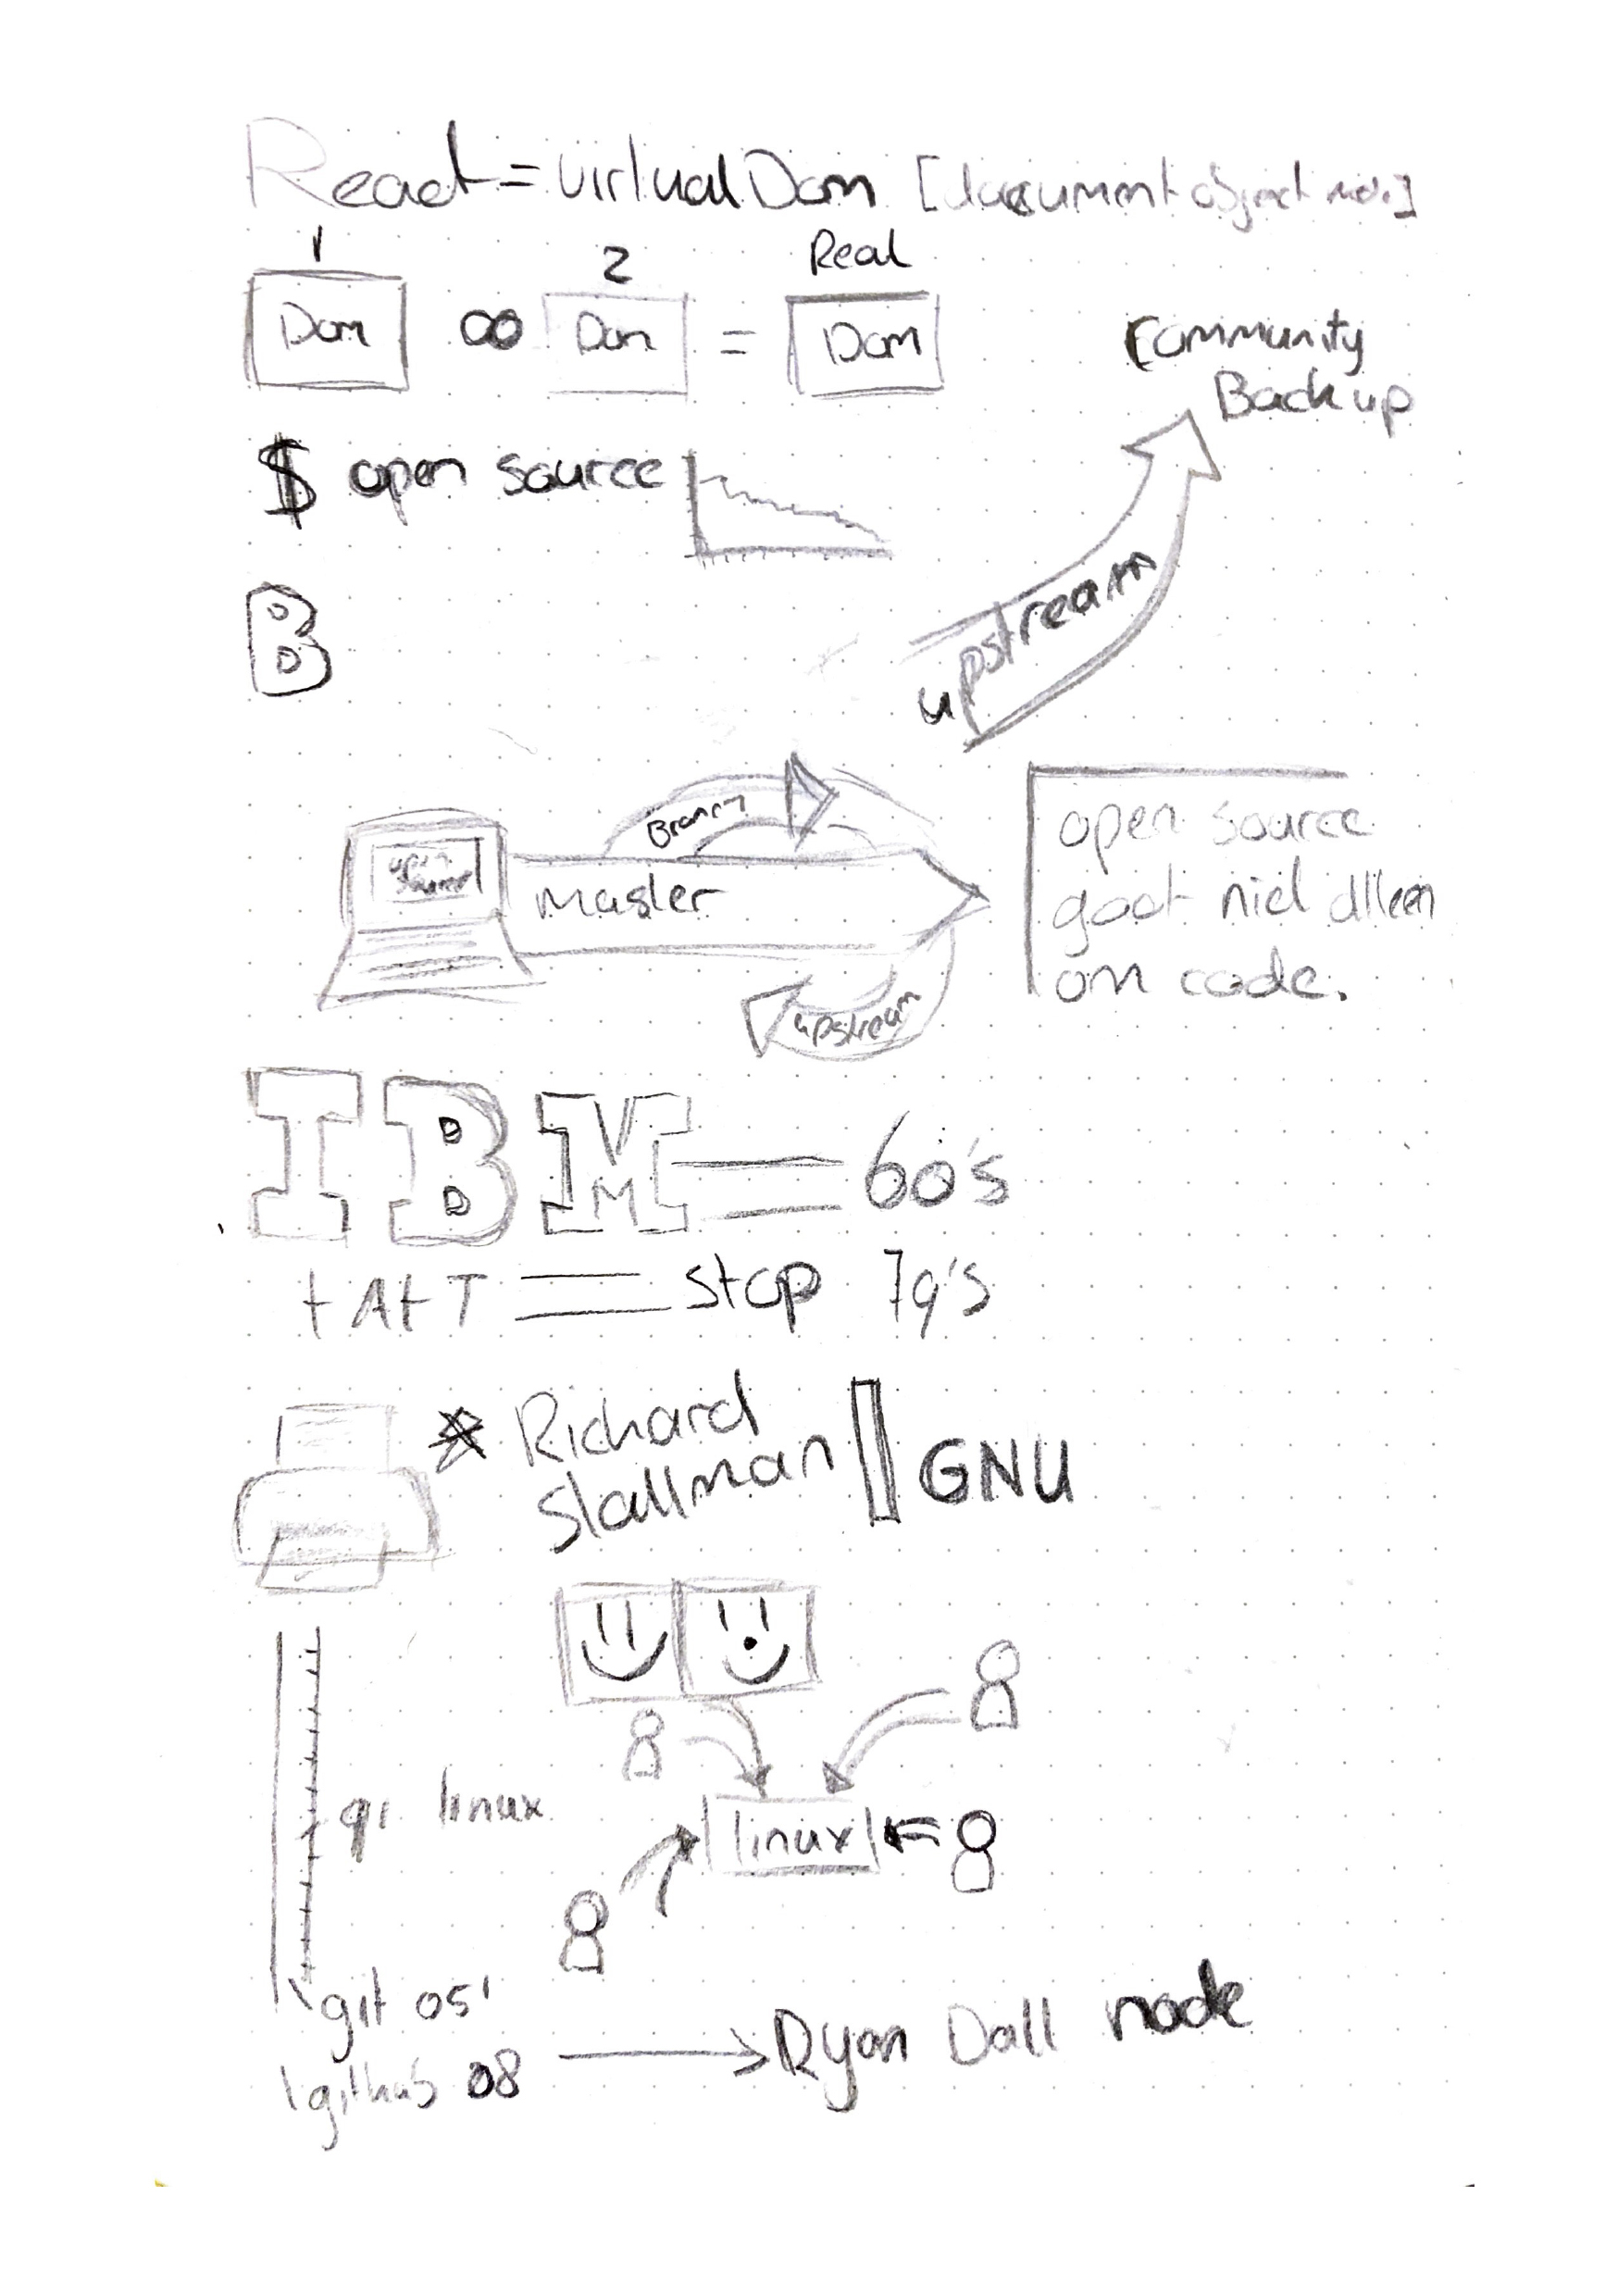 React = virtual Dom [document object model]
1 2 Real
Dom ∞ Dom = Dom
Community
Backup
$ open source
upstream
B
Branch
open
source
Master
upstream
open source
gaat niet alleen
om code.
IBM = 60's
+ At T = stop 79's
* Richard
Stallman || GNU
91 linux
linux
git 05'
github 08 → Ryan Dall node